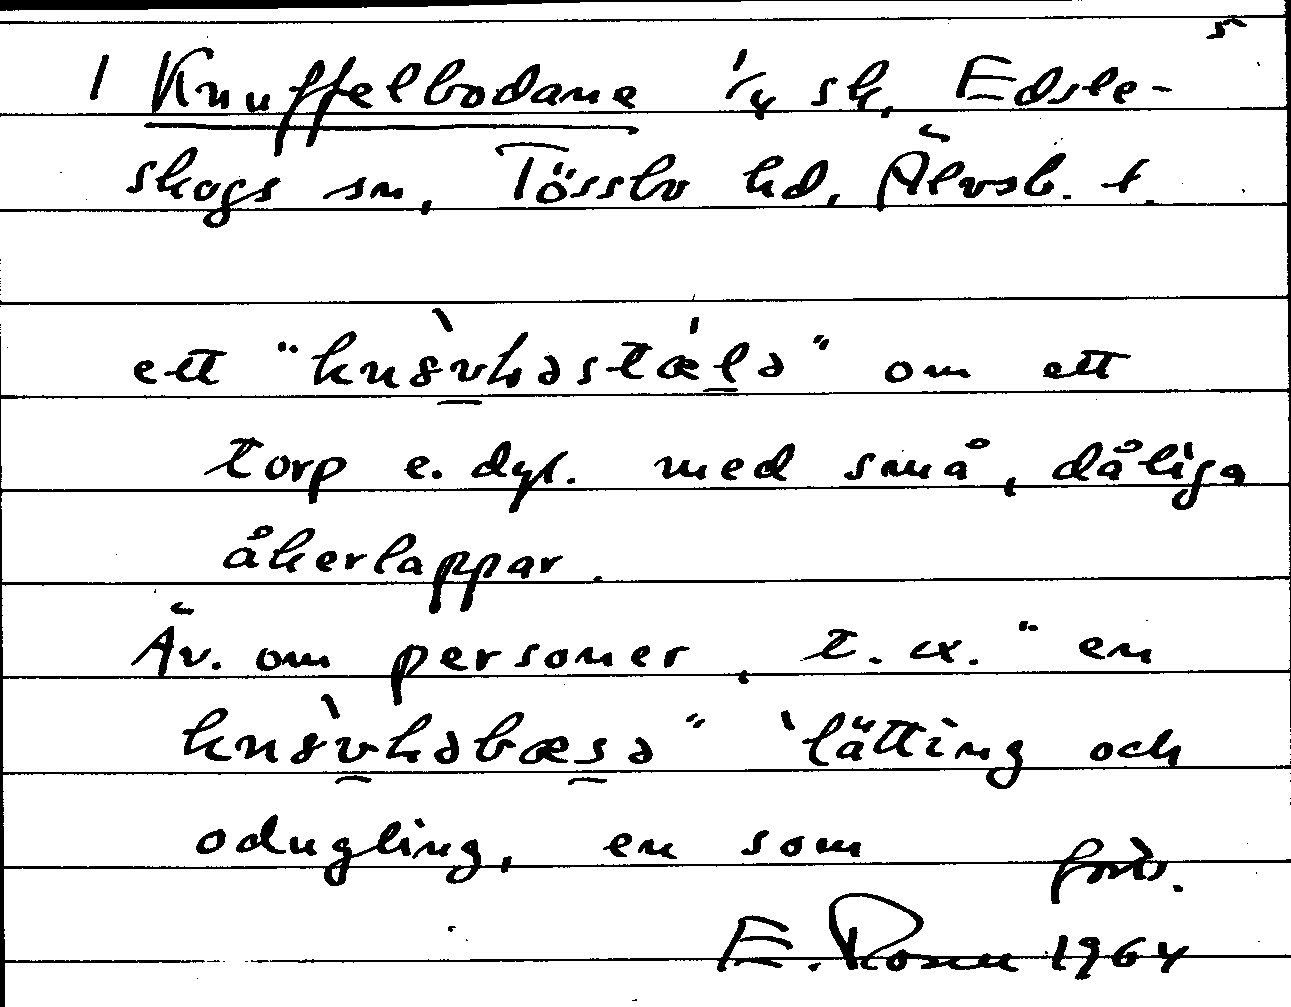 5
1 Knuffelbodane 1/4 sk, Edsle-
skogs sn, Tössbo hd, Älvsb. l.
ett "
" om ett
torp e. dyl. med små, dåliga
åkerlappar.
Äv. om personer, t. ex. "en
" 'lätting och
odugling, en som forts.
E. Rosell 1964